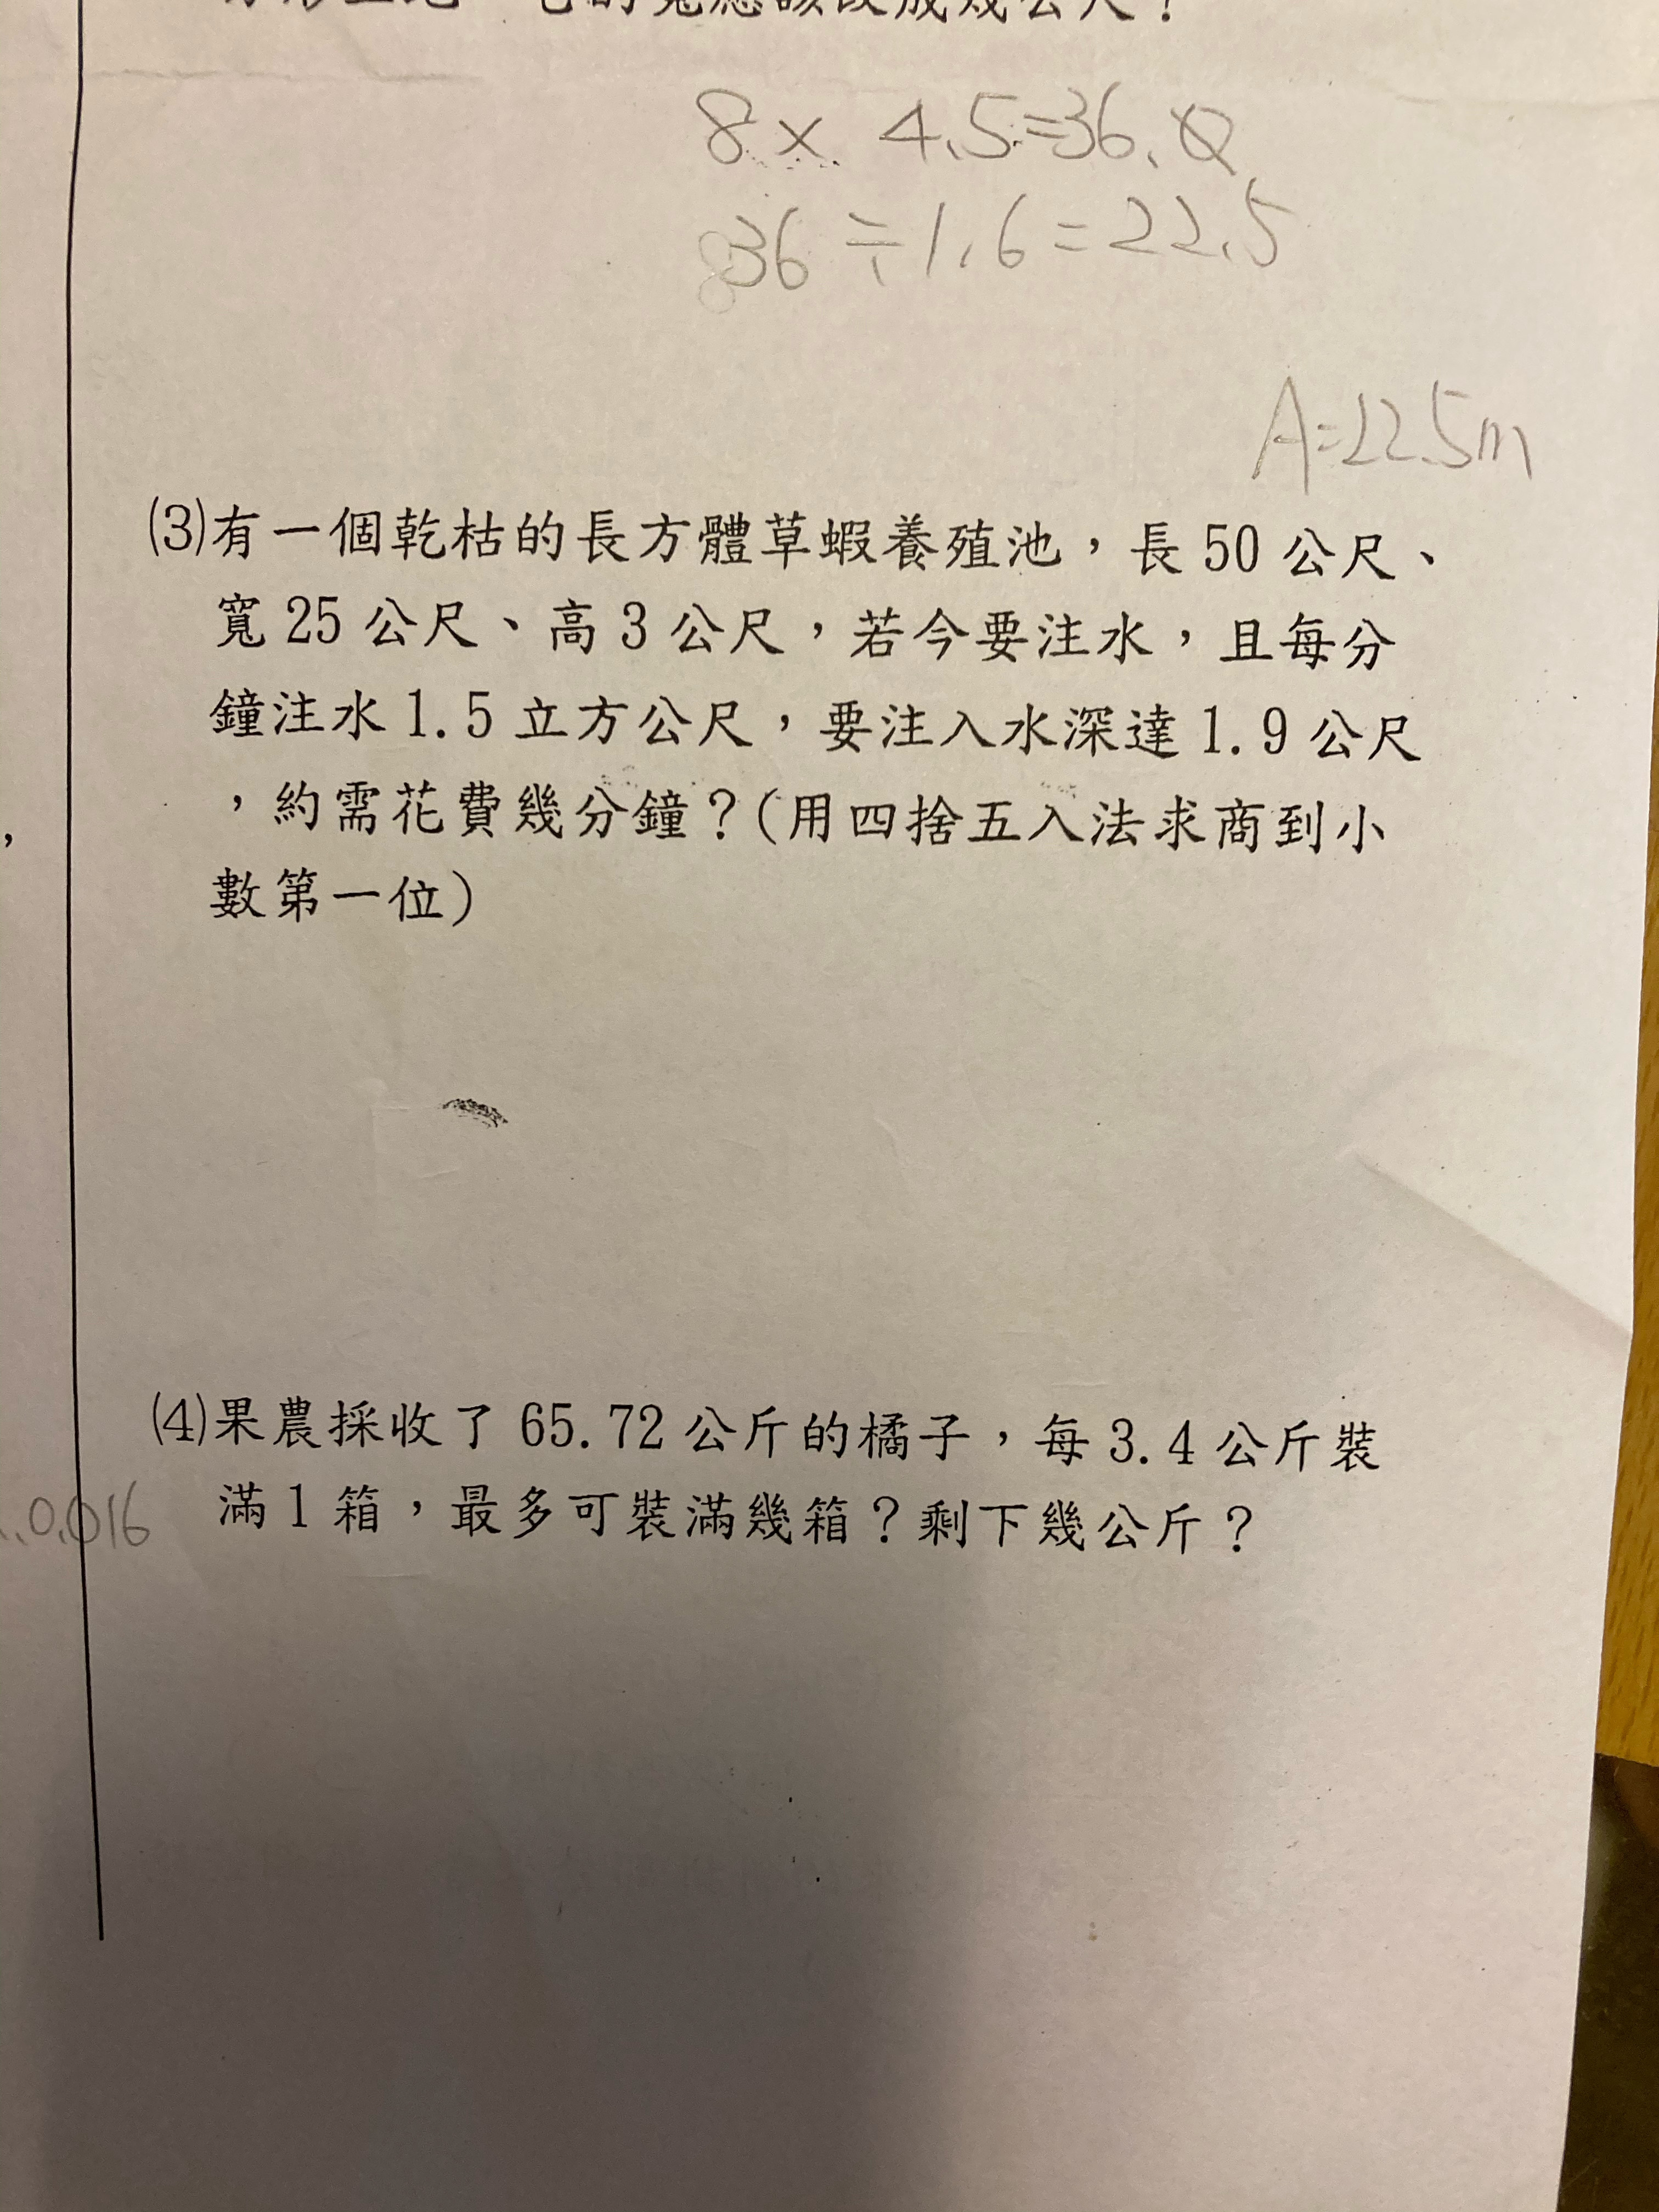 它的寬應該改成幾公尺？
8 × 4.5=36.0
36 ÷ 1.6 = 22.5
A=22.5m
⑶有一個乾枯的長方體草蝦養殖池，長 50 公尺、
寬 25 公尺、高 3 公尺，若今要注水，且每分
鐘注水 1.5 立方公尺，要注入水深達 1.9 公尺
，約需花費幾分鐘？(用四捨五入法求商到小
數第一位)
，
⑷果農採收了 65.72 公斤的橘子，每 3.4 公斤裝
滿 1 箱，最多可裝滿幾箱？剩下幾公斤？
0.016